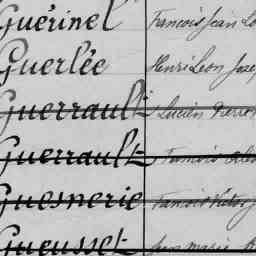 Guérinel François Jean Lo
Guerlée Henri Léon Jose
Guerrault Lucien Pierre
Guerrault Francis
Guesnerie François Victor
Gueusset Jean Marie